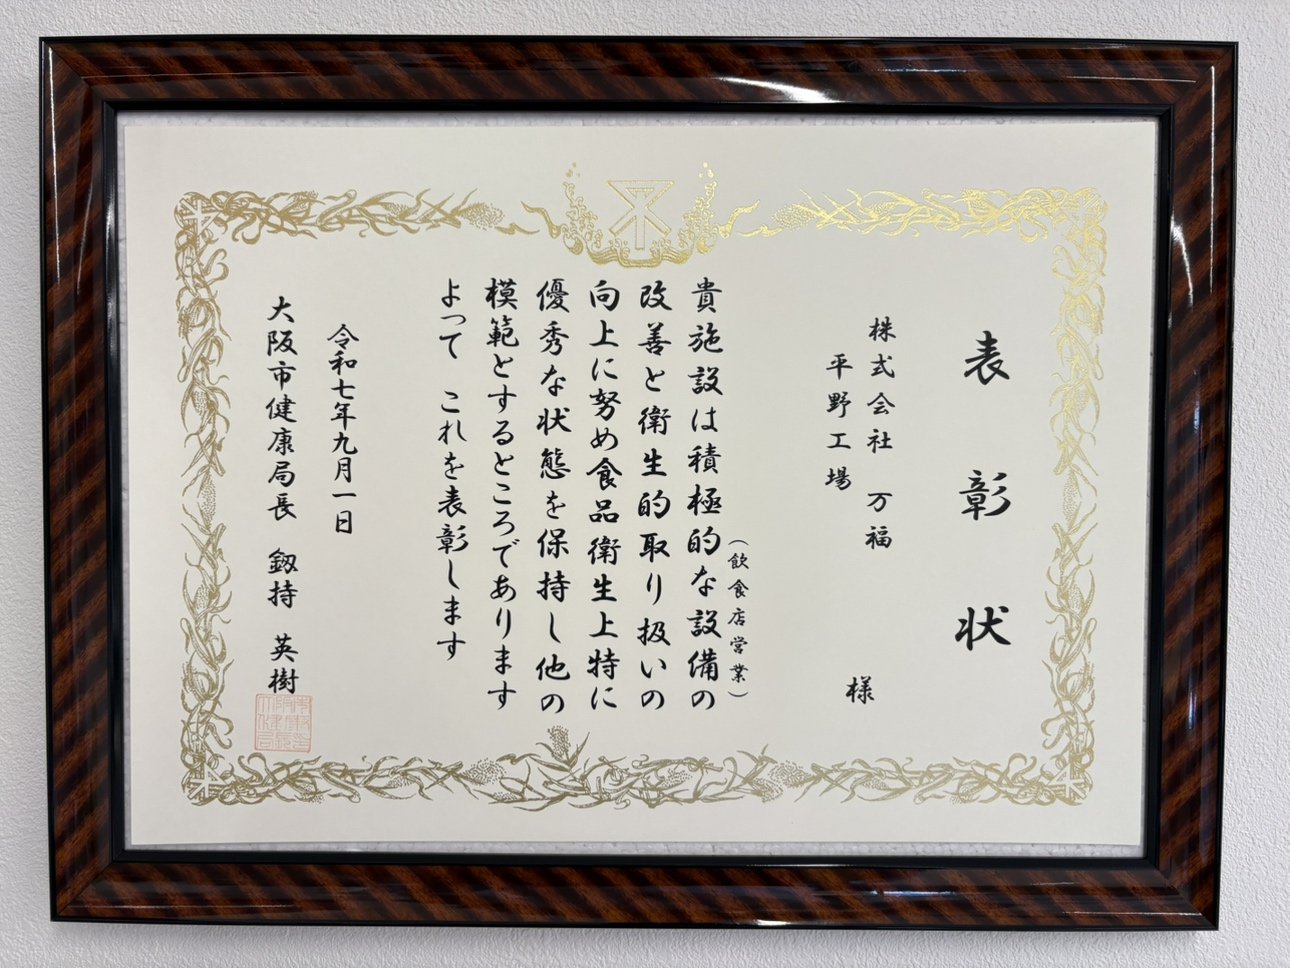 表彰状
株式会社 万福
平野工場
様
（飲食店営業）
貴施設は積極的な設備の
改善と衛生的取り扱いの
向上に努め食品衛生上特に
優秀な状態を保持し他の
模範とするところであります
よって これを表彰します
令和七年九月一日
大阪市健康局長 釼持 英樹